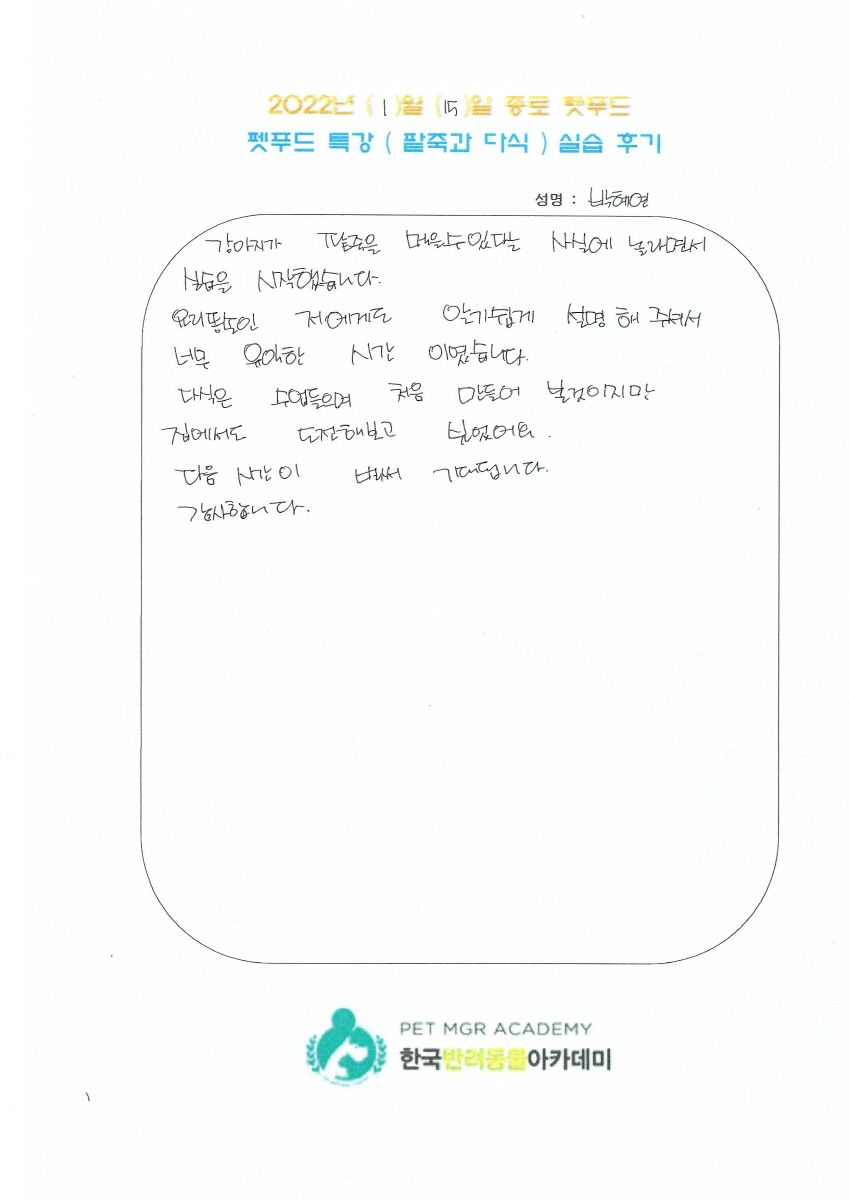 2022년 ( 1 )월 (15)일 종로 펫푸드
펫푸드 특강 ( 팥죽과 다식 ) 실습 후기
성명 : 박혜연
강아지가 팥죽을 먹을수있다는 사실에 놀라면서
실습을 시작했습니다.
요리똥도인 저에게도 알기쉽게 설명 해 주셔서
너무 유익한 시간 이였습니다.
다식은 수업들으며 처음 만들어 본것이지만
집에서도 도전해보고 싶었어요.
다음 시간이 벌써 기대됩니다.
감사합니다.
PET MGR ACADEMY
한국반려동물아카데미